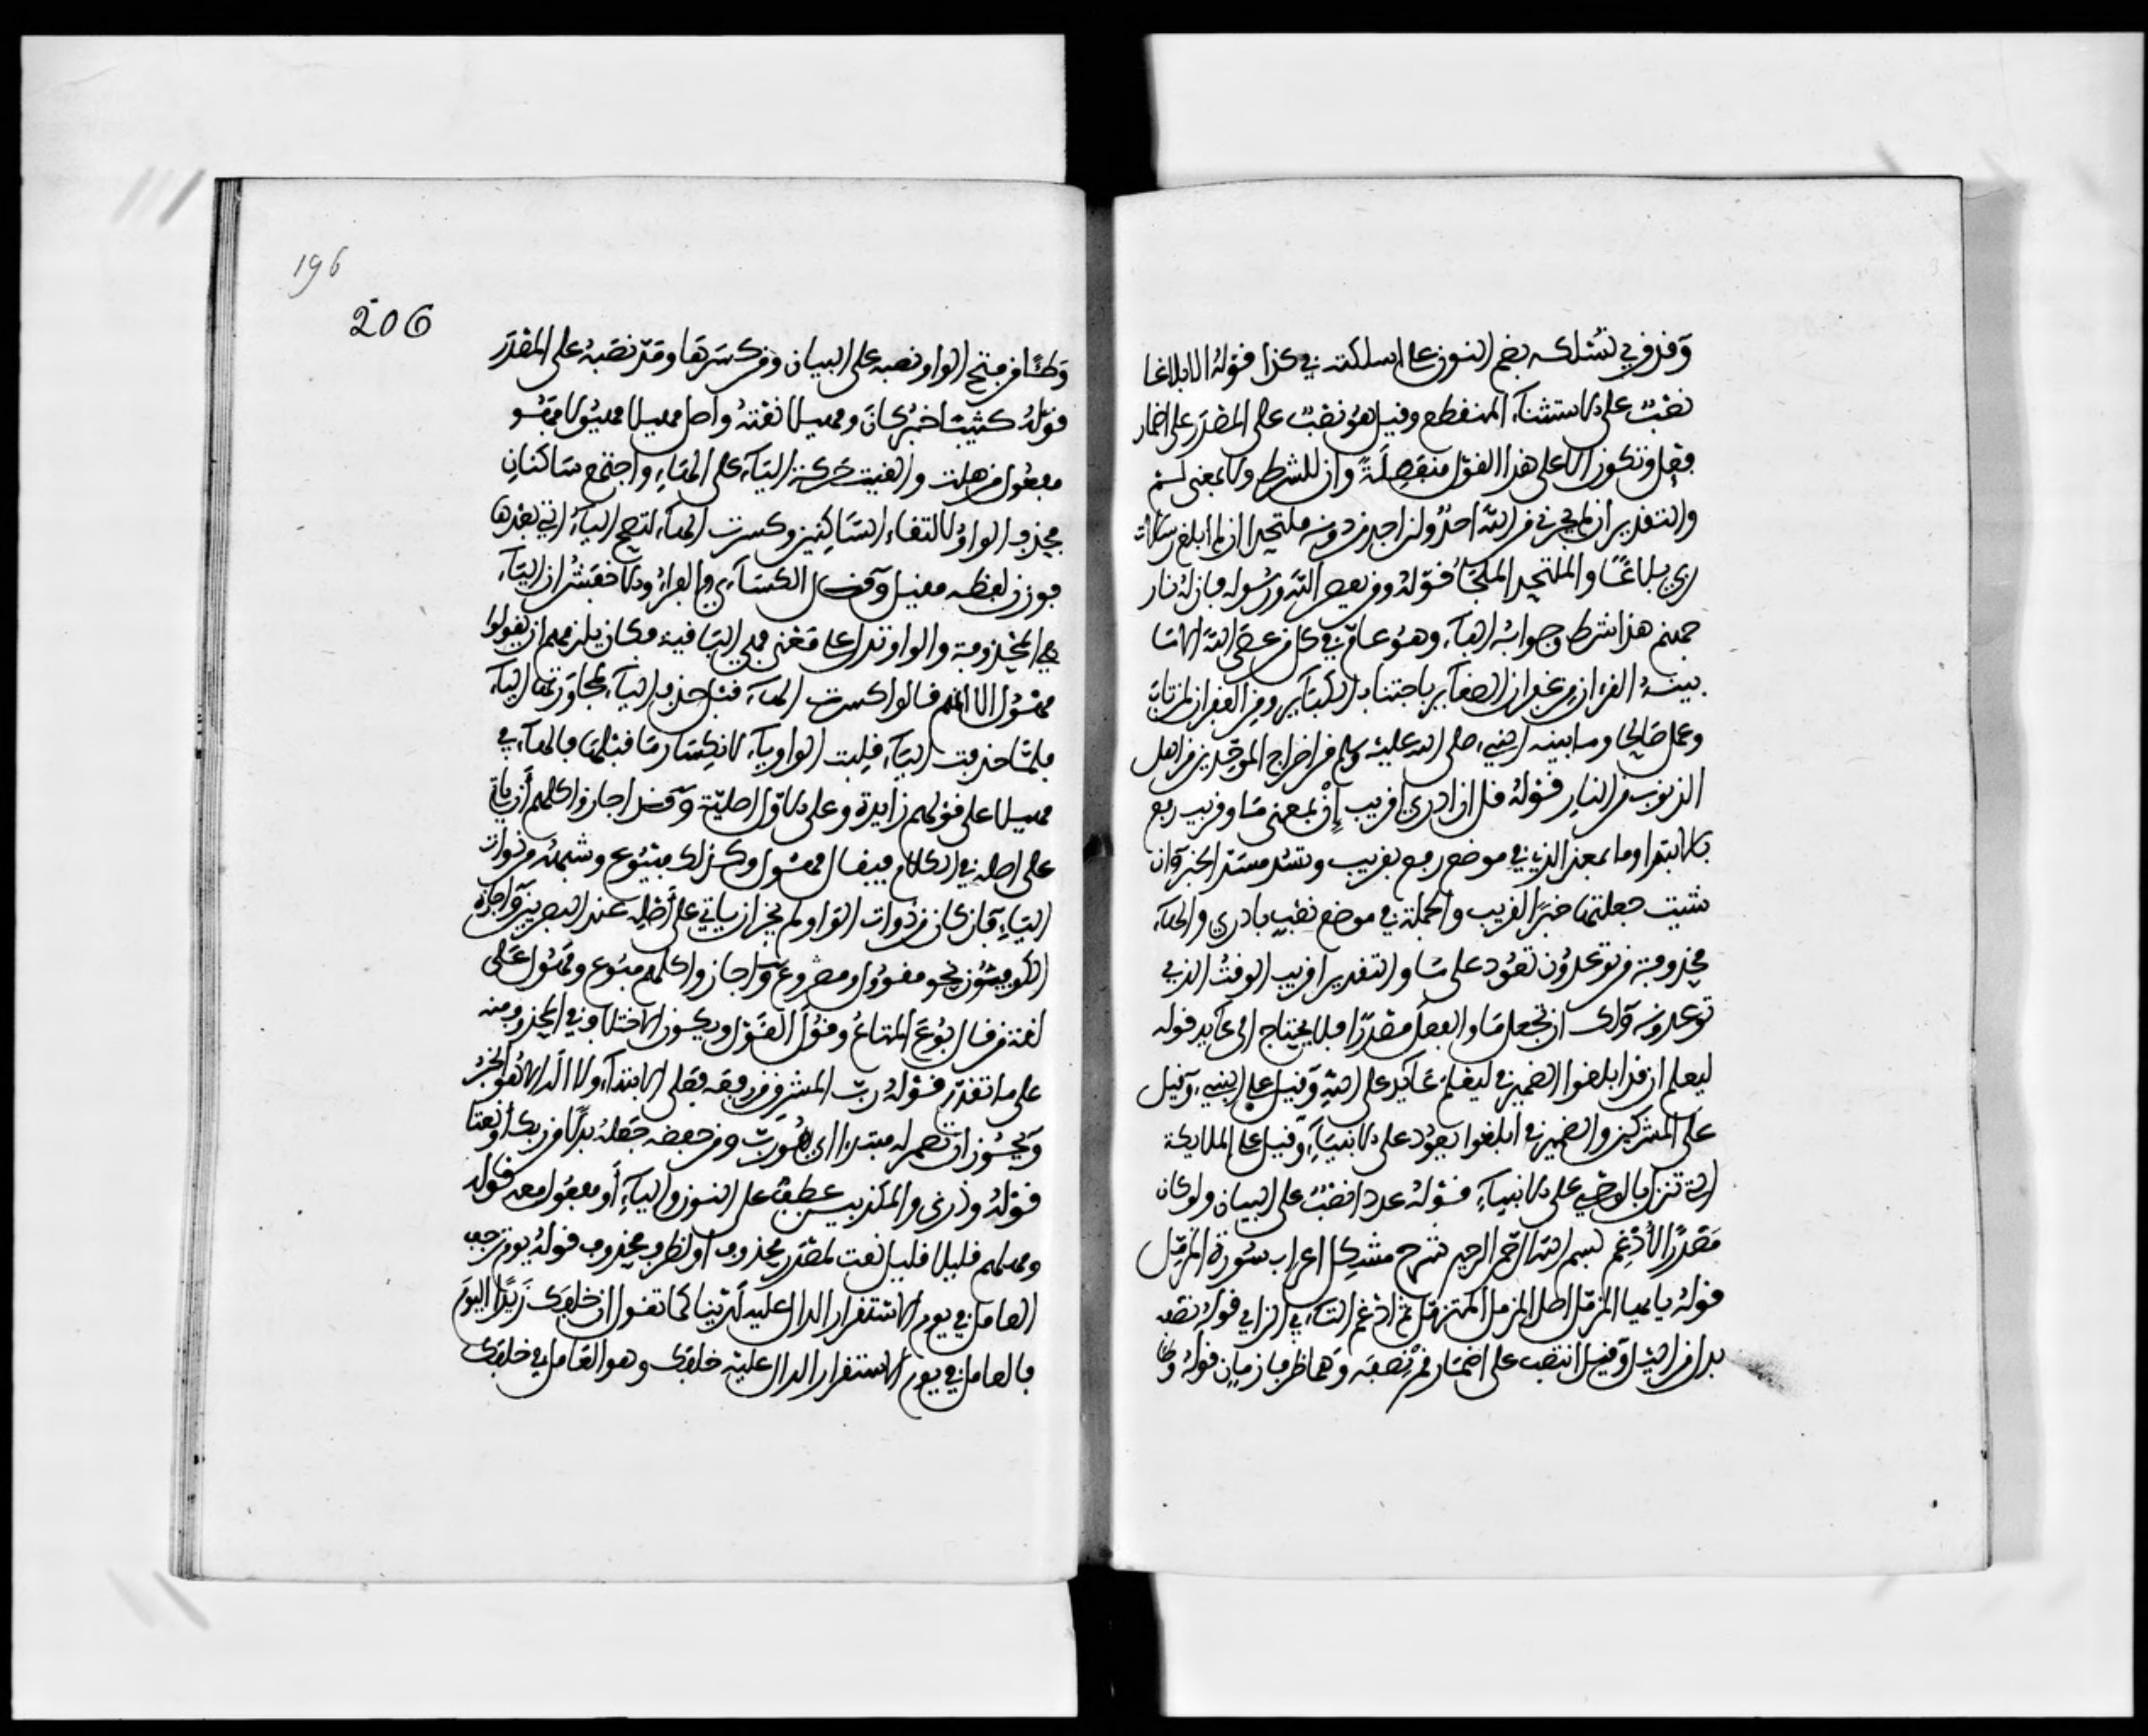 وقد قرئ نسلكه بضم النون على اسلكته في كذا قوله الا بلاغا
نصب على الاستثناء المنقطع وقيل هو نصب على المصدر على اضمار
فعل وتكون الا على هذا القول منفصلة وان للشرط ولا بمعنى لم
والتقدير اني لن يجيرني من الله احد ولن اجد من دونه ملتحدا ان لم ابلغ رسالات
ربي بلاغا والملتحد الملجأ قوله ومن يعص الله ورسوله فإن له نار
جهنم هذا شرط وجوابه الفاء وهو عام في كل من عصى الله الا ما
بينه القرءان من غفران الصغائر باجتناب الكبائر ومن الغفران لمن تاب
وعمل صالحا وما بينه النبي صلى الله عليه وسلم من اخراج الموحدين من اهل
الذنوب من النار قوله قل ان ادري اقريب إن بمعنى ما وقريب رفع
بالابتدا وما بمعنى الذي في موضع رفع بقريب وتسد مسد الخبر وان
شئت جعلتها خبرا لقريب والجملة في موضع نصب بادري والهاء
محذوفة من توعدون تعود على ما والتقدير اقريب الوقت الذي
توعدونه ولك ان تجعل ما والفعل مصدرا فلا يحتاج الى عائد قوله
ليعلم ان قد ابلغوا الضمير في ليعلم عائد على الله وقيل على النبي وقيل
على المشركين والضمير في ابلغوا يعود على الانبياء وقيل على الملائكة
التي تنزل بالوحي على الانبياء قوله عددا نصب على البيان ولو كان
مصدرا لأدغم بسم الله الرحمن الرحيم شرح مشكل اعراب سورة المزمل
قوله يا ايها المزمل اصل المزمل المتزمل ثم ادغم التاء في الزاي قوله نصفه
بدل من الليل وقيل انتصب على اضمار قم نصفه وهما ظرفا زمان قوله وطا
196
206
وطئا من فتح الواو نصبه على البيان ومن كسرها ومد نصبه على المصدر
قوله كثيبا خبر كان ومهيلا نعته واصل مهيلا مهيولا فهو
مفعول من هلت والقيت حركة الياء على الهاء واجتمع ساكنان
فحذف الواو لالتقاء الساكنين وكسرت الهاء لتصح الياء التي بعدها
فوزن لفظه مفيل وقال الكسائي والفراء والاخفش ان الياء
هي المحذوفة والواو تدل على معنى فهي الباقية فكان يلزمهم ان يقولوا
مهول الا انهم قالوا كسرت الهاء قبل حذف الياء لمجاورتها الياء
فلما حذفت الياء قلبت الواو ياء لانكسار ما قبلها فالياء في
مهيلا على قولهم زائدة وعلى الاول اصلية وقد اجازوا كلهم أن يأتي
على اصله في الكلام فيقال مهيول وكذلك مبيوع وشبهه من ذوات
الياء فإن كان من ذوات الواو لم يجز ان ياتي على أصله عند البصريين واجازه
الكوفيون نحو مقوول ومصووغ واجازوا كلهم مبوع ومهول على
لغة من قال بوع المتاع وقول القول ويكون الاختلاف في المحذوف منه
على ما تقدم قوله رب المشرق من رفعه فعلى الابتداء ولا اله الا هو الخبر
ويجوز ان تضمر له مبتدا اي هو رب ومن خفضه جعله بدلا من ربك أو نعتا
قوله وذرني والمكذبين عطف على النون والياء أو مفعول معه قوله
ومهلهم قليلا قليلا نعت لمصدر محذوف او لظرف محذوف قوله يوم ترجف
العامل في يوم الاستقرار الدال عليه لدينا كما تقول ان خلفك زيدا اليوم
فالعامل في يوم الاستقرار الدال عليه خلفك وهو العامل في خلفك